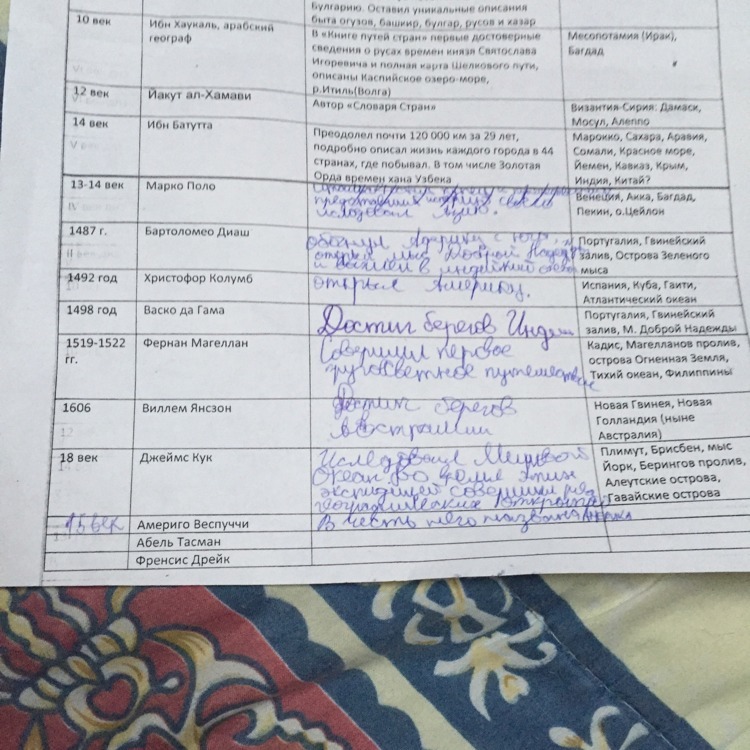 Булгарию. Оставил уникальные описания
быта огузов, башкир, булгар, русов и хазар
10 век
Ибн Хаукаль, арабский
географ
В «Книге путей стран» первые достоверные
сведения о русах времен князя Святослава
Игоревича и полная карта Шелкового пути,
описаны Каспийское озеро-море,
р.Итиль(Волга)
Месопотамия (Ирак),
Багдад
12 век
Йакут ал-Хамави
Автор «Словаря Стран»
Византия-Сирия: Дамаск,
Мосул, Алеппо
14 век
Ибн Батутта
Преодолел почти 120 000 км за 29 лет,
подробно описал жизнь каждого города в 44
странах, где побывал. В том числе Золотая
Орда времен хана Узбека
Марокко, Сахара, Аравия,
Сомали, Красное море,
Йемен, Кавказ, Крым,
Индия, Китай?
13-14 век
Марко Поло
исследовал Азию.
Венеция, Акка, Багдад,
Пекин, о.Цейлон
1487 г.
Бартоломео Диаш
обогнул Африку с юга,
открыл мыс Доброй Надежды
и вышел в индийский океан
Португалия, Гвинейский
залив, Острова Зеленого
мыса
1492 год
Христофор Колумб
открыл Америку.
Испания, Куба, Гаити,
Атлантический океан
1498 год
Васко да Гама
Достиг берегов Индии
Португалия, Гвинейский
залив, М. Доброй Надежды
1519-1522
гг.
Фернан Магеллан
Совершил первое
кругосветное путешествие
Кадис, Магелланов пролив,
острова Огненная Земля,
Тихий океан, Филиппины
1606
Виллем Янсзон
Достиг берегов
Австралии
Новая Гвинея, Новая
Голландия (ныне
Австралия)
18 век
Джеймс Кук
Исследовал Мировой
Океан во время этих
экспедицей совершил ряд
географических открытий
Плимут, Брисбен, мыс
Йорк, Берингов пролив,
Алеутские острова,
Гавайские острова
15 век
Америго Веспуччи
В честь него названа Америка
Абель Тасман
Френсис Дрейк